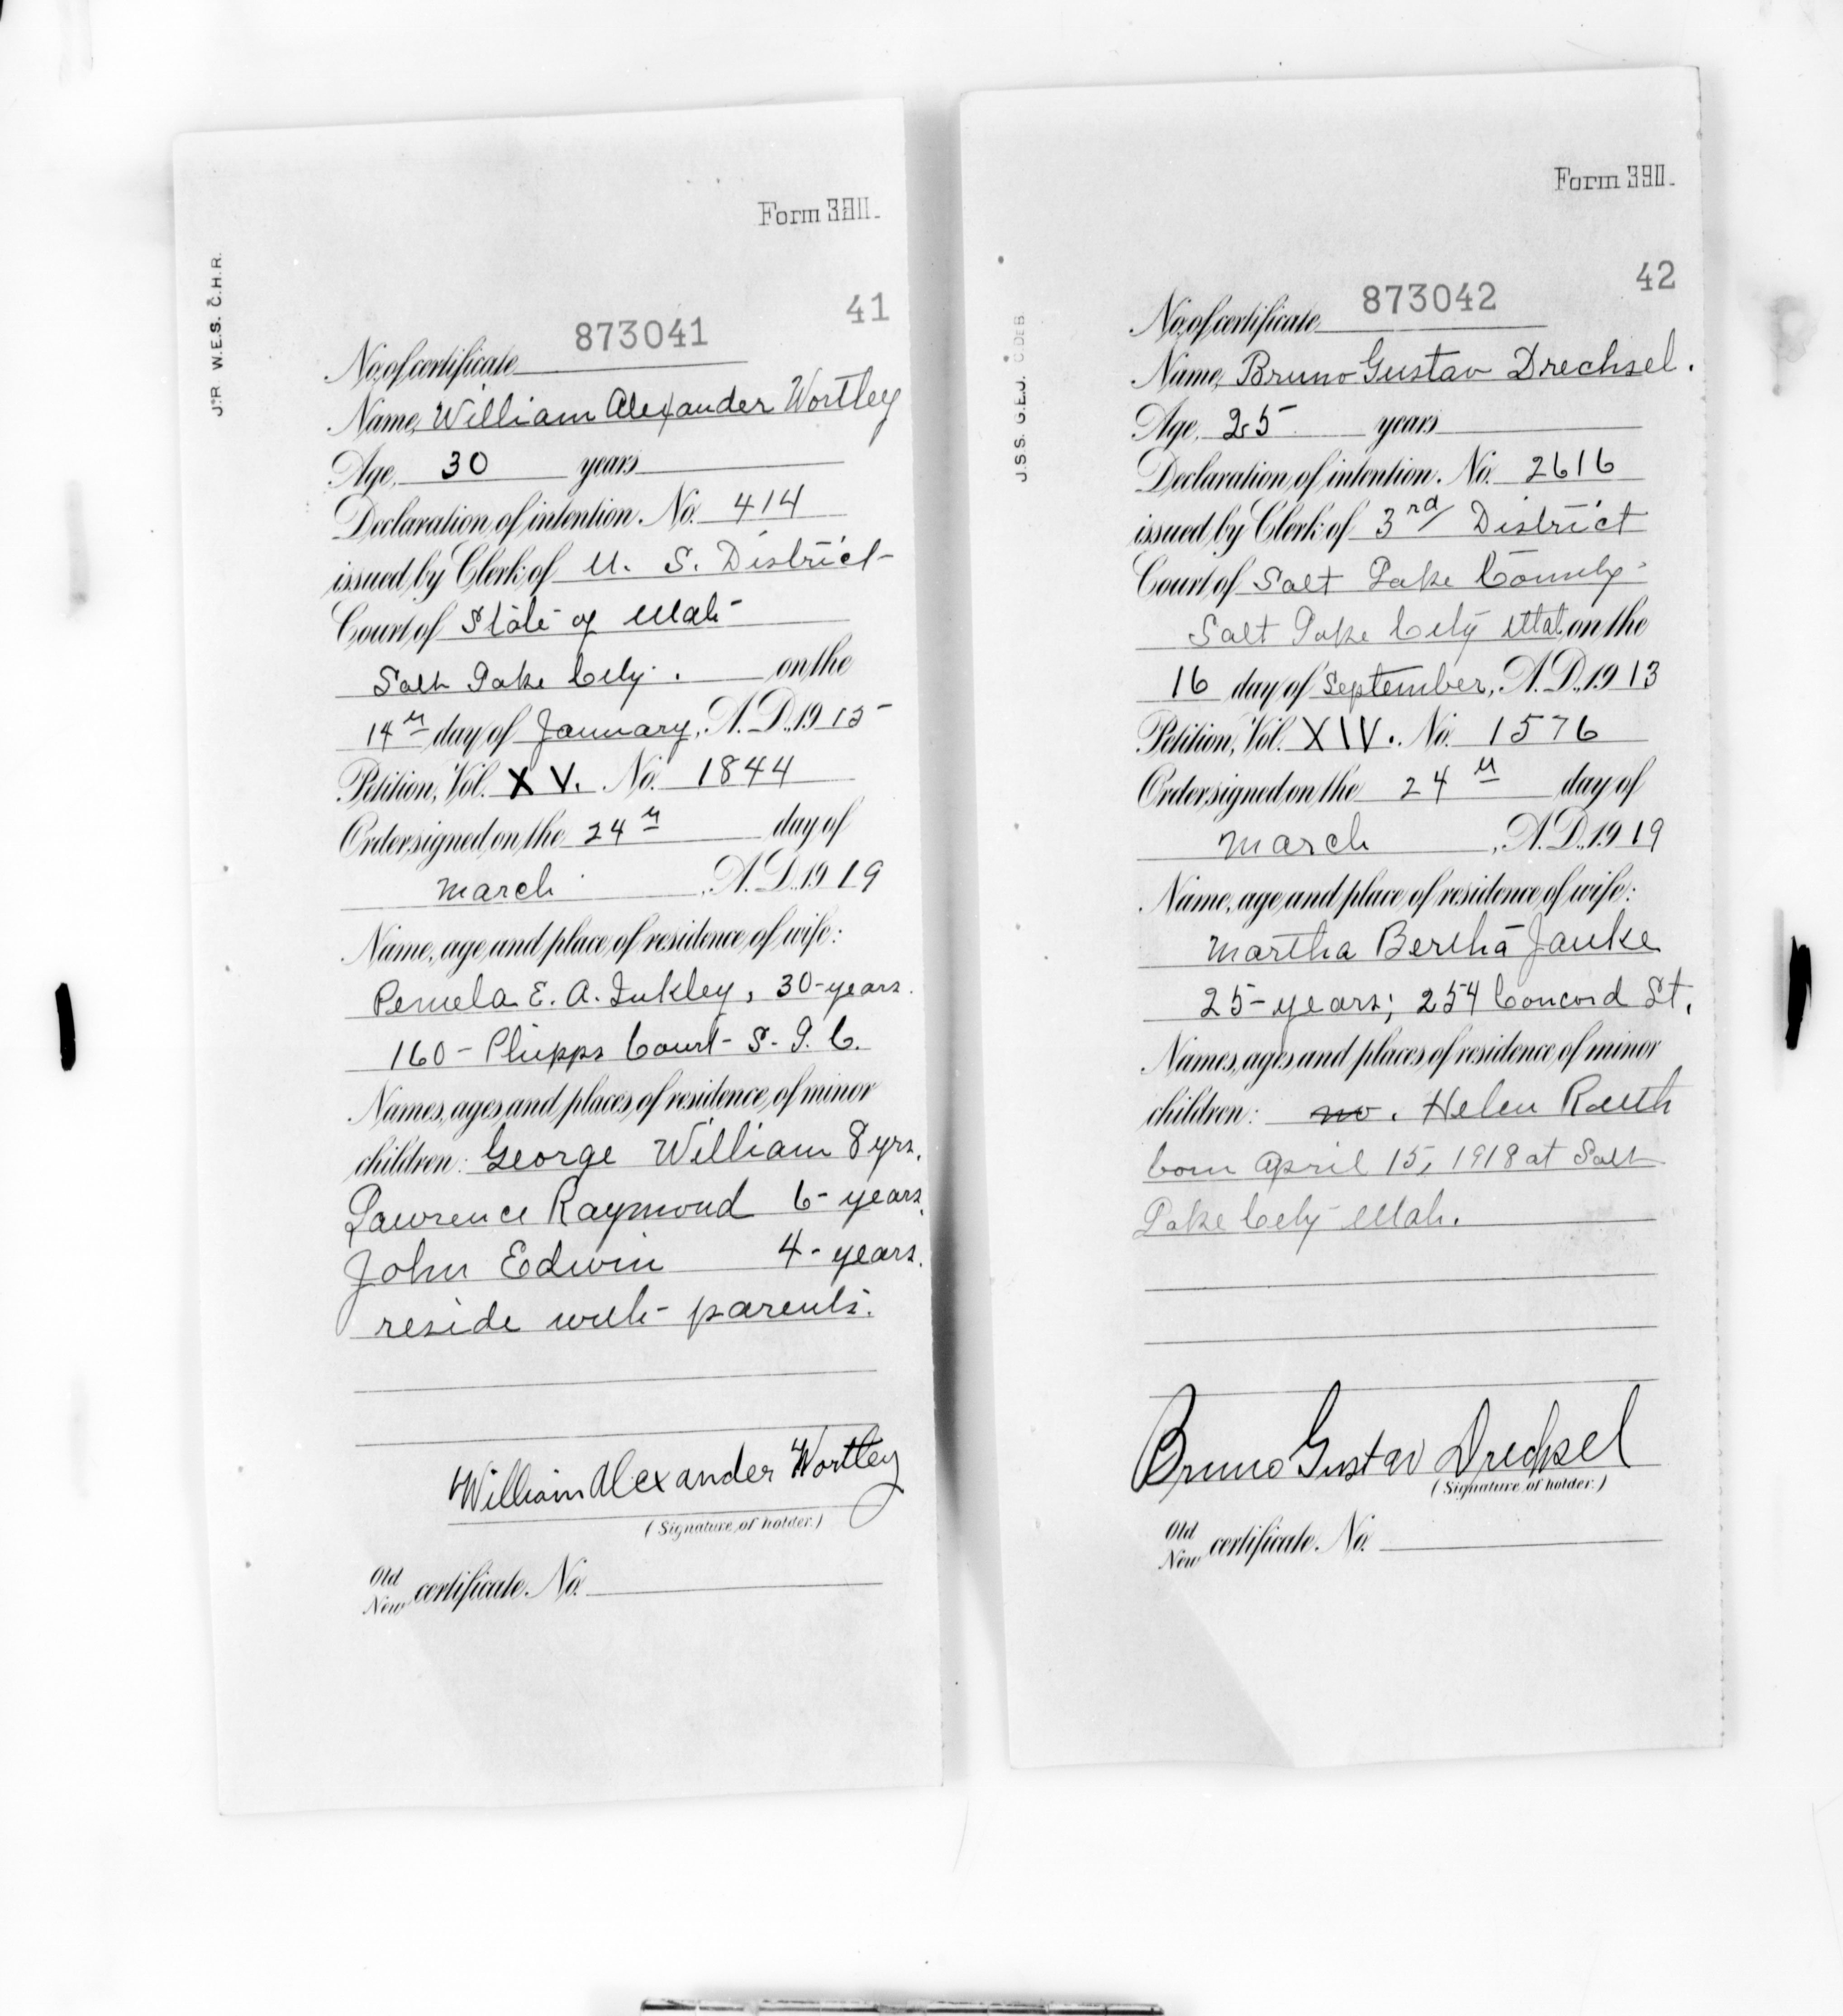 Form 3911.
J.R. W.E.S. C.H.R.
41
No. of certificate 873041
Name, William Alexander Wortley
Age, 30 years
Declaration of intention. No. 414
issued by Clerk of U. S. District
Court of State of Utah
Salt Lake City. on the
14th day of January, A.D., 1915
Petition, Vol. XV. No. 1844
Order signed on the 24th day of
March A.D. 1919
Name, age and place of residence of wife:
E. A. Inkley, 30-years.
160 - Phipps Court - S. L. C.
Names, ages and places of residence of minor
children: George William 8 yrs.
Lawrence Raymond 6- years.
John Edwin 4- years.
reside with parents.
William Alexander Wortley
(Signature of holder.)
Old
New certificate. No.
Form 390.
J.S.S. G.E.J. C.DEB
42
No. of certificate 873042
Name, Bruno Gustav Drechsel.
Age, 25 years
Declaration of intention. No. 2616
issued by Clerk of 3rd District
Court of Salt Lake County
Salt Lake City Utah on the
16 day of September, A.D., 1913
Petition, Vol. XIV. No. 1576
Order signed on the 24th day of
March, A.D., 1919
Name, age and place of residence of wife:
Martha Bertha Janke
25-years; 254 Concord St.
Names, ages and places of residence of minor
children: no. Helen Ruth
born April 15, 1918 at Salt
Lake City Utah.
Bruno Gustav Drechsel
(Signature of holder.)
Old
New certificate. No.